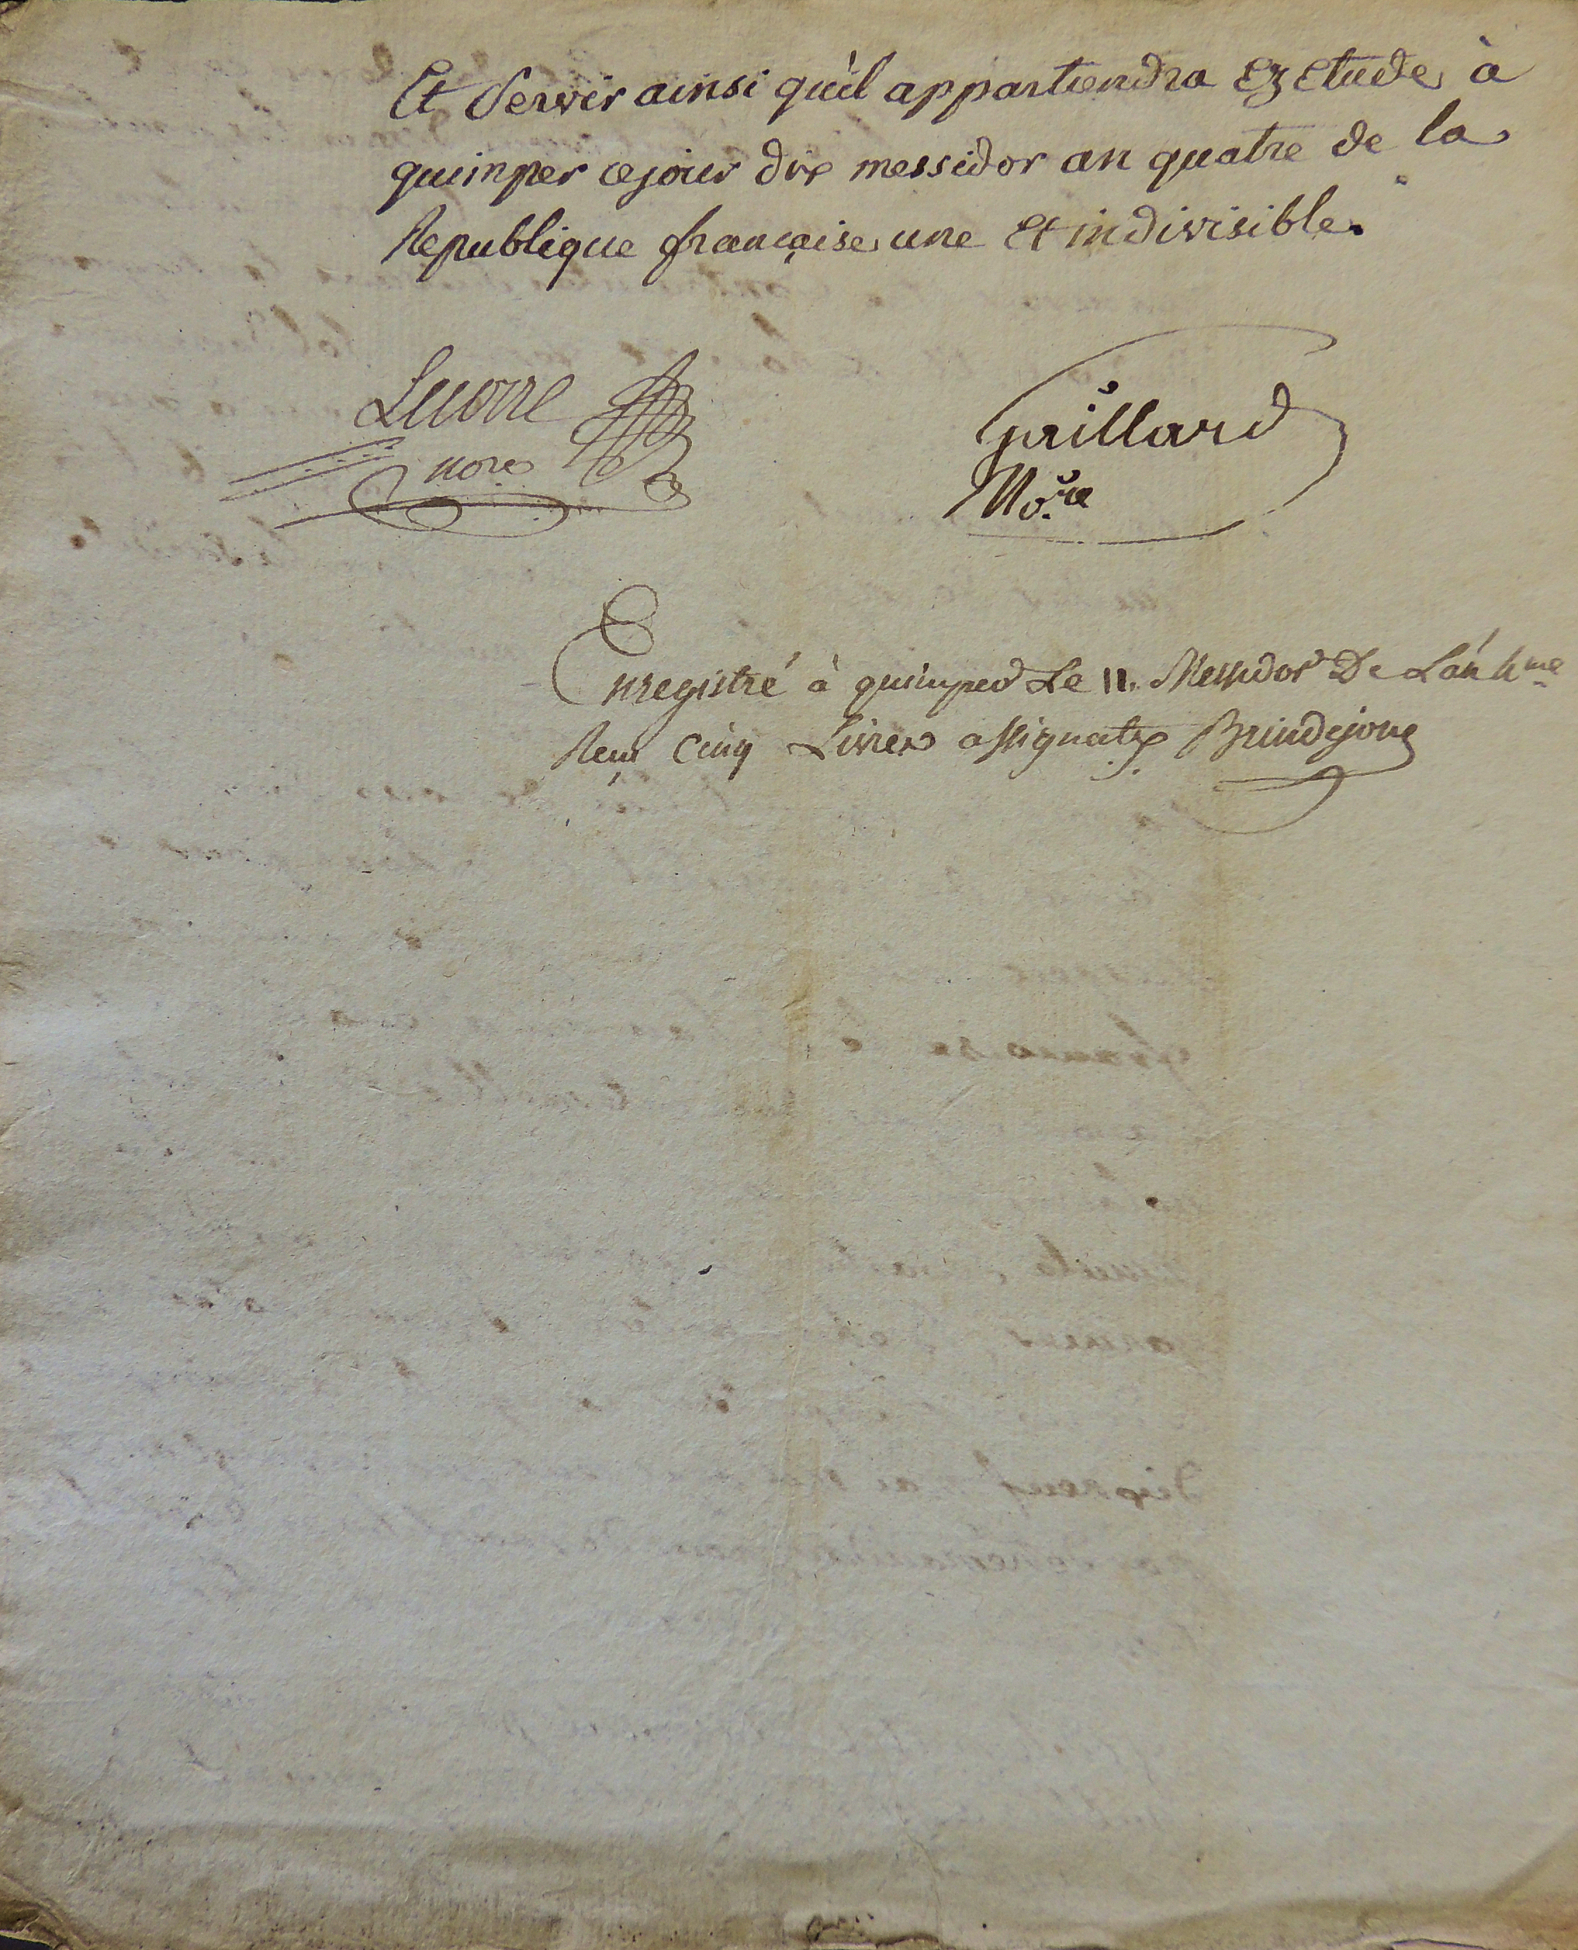 Et servir ainsi qu'il appartiendra Ez Etude à
quimper ce jour dix messidor an quatre de la
Republique française une Et indivisible.
nore
Gaillard
No.re
Enregistré à quimper Le 11. Messidor De L'an 4me
Reçu Cinq Livres assignats Brindejonc